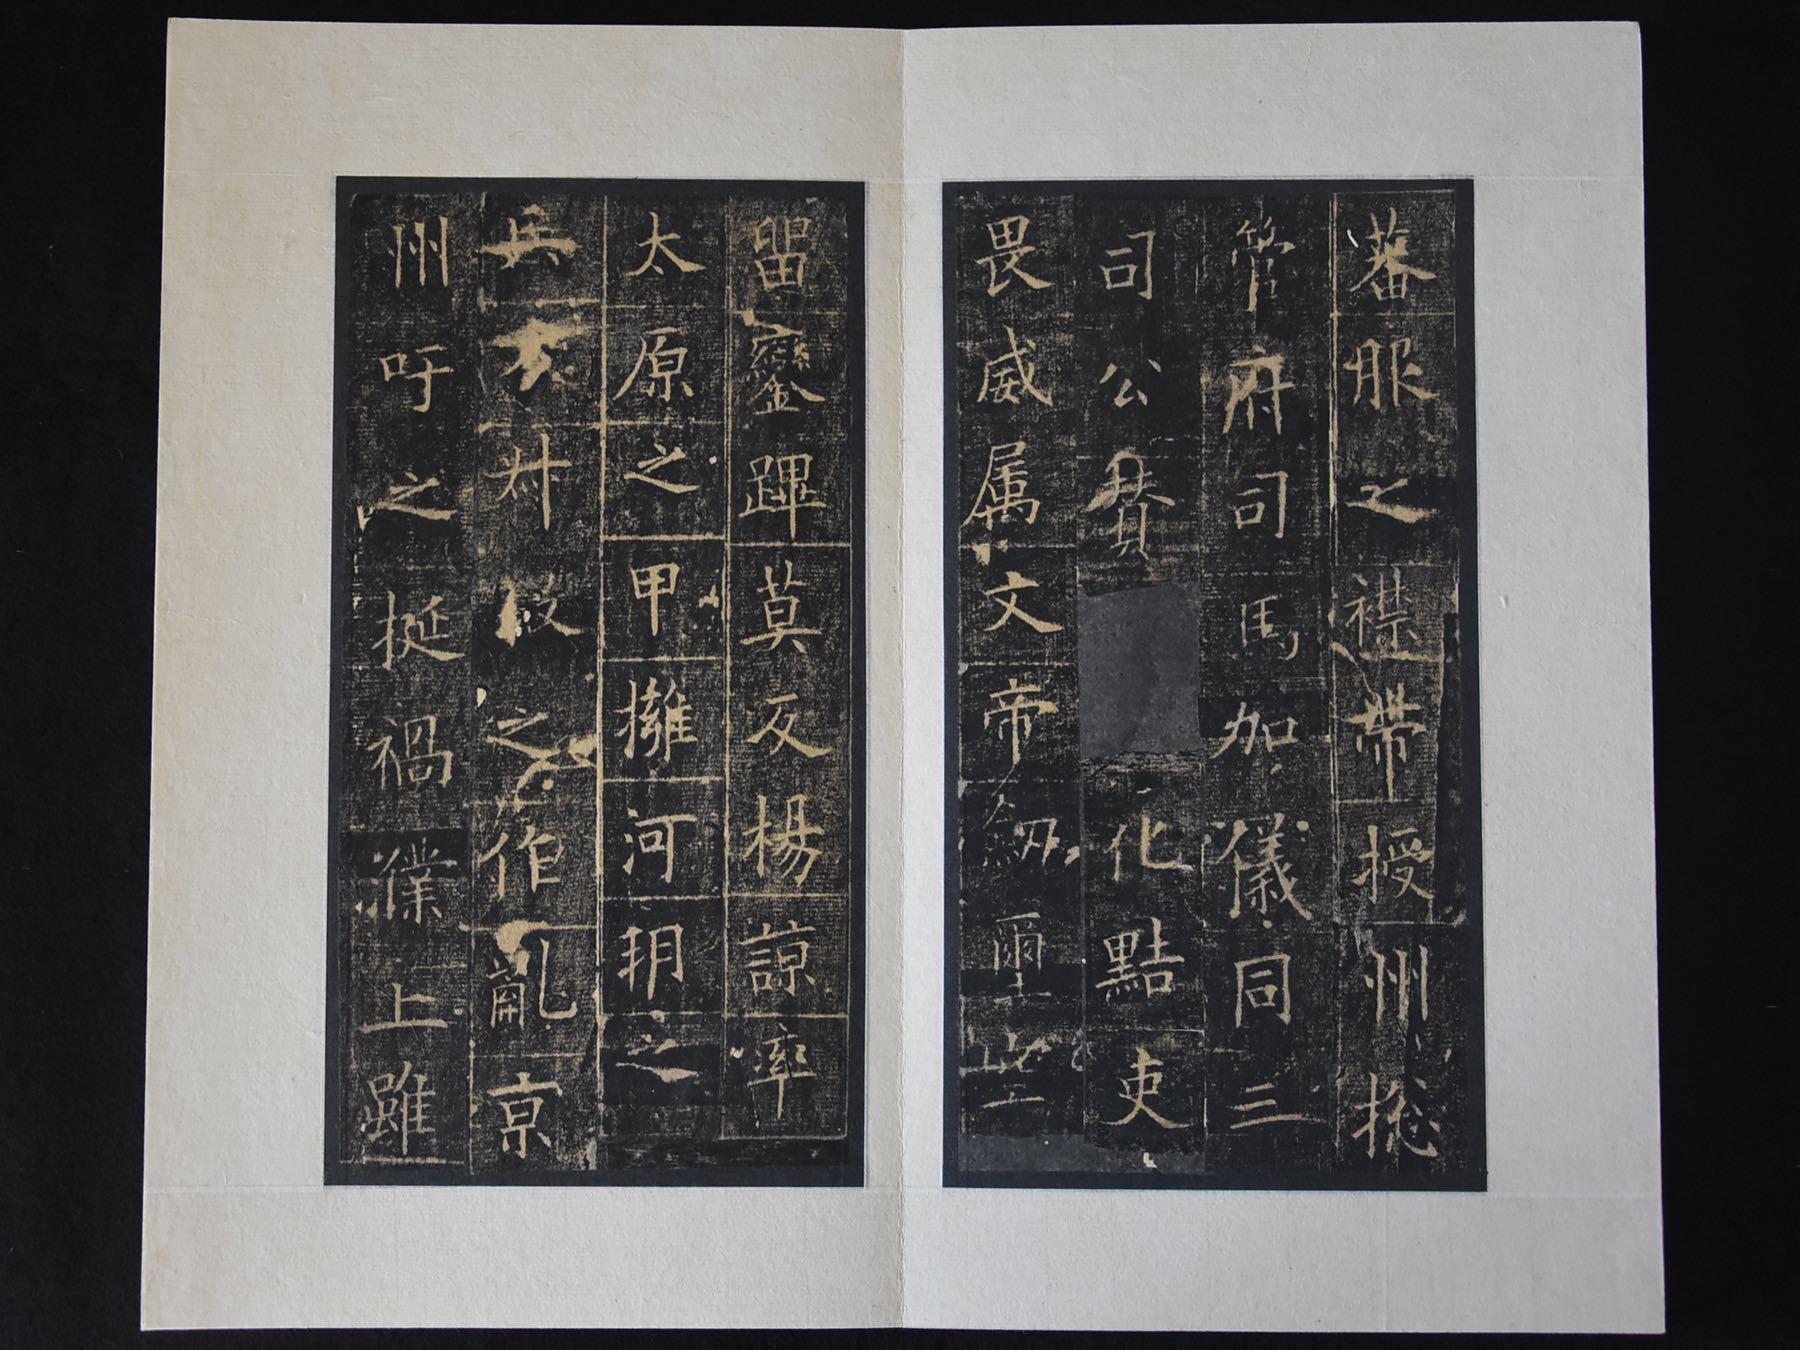 蕃服之襟帶授州揔
管府司馬加儀同三
司公賛化黠吏
畏威属文帝劔璽空
留鑾蹕莫反楊諒率
太原之甲擁河朔之
兵方叔段之作亂京
州吁之挺禍濮上雖